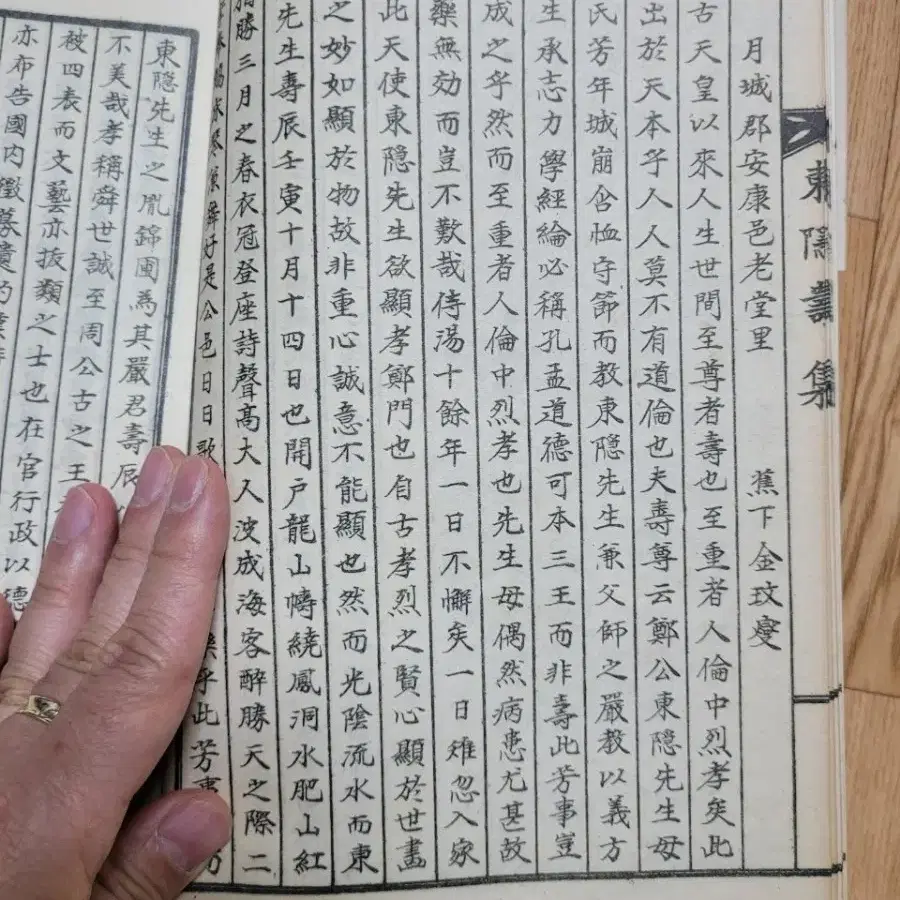 東隱壽集
月城郡安康邑老堂里 蕉下金玟燮
古天皇以來人生世間至尊者壽也至重者人倫中烈孝矣此
出於天本乎人人莫不有道倫也夫壽尊云鄭公東隱先生母
氏芳年城崩含恤守節而教東隱先生兼父師之嚴教以義方
生承志力學經綸必稱孔孟道德可本三王而非壽此芳事豈
成之乎然而至重者人倫中烈孝也先生母偶然病患尤甚故
藥無効而豈不歎哉侍湯十餘年一日不懈矣一日雉忽入家
此天使東隱先生欲顯孝鄭門也自古孝烈之賢心顯於世畵
之妙如顯於物故非重心誠意不能顯也然而光陰流水而東
先生壽辰壬寅十月十四日也開戶龍山幬繞鳳洞水肥山紅
勝三月之春衣冠登座詩聲高大人波成海客醉勝天之際二
舞好是公邑日日歌 樂乎此芳事
東隱先生之胤錦圃為其嚴君壽辰
不美哉孝稱舜世誠至周公古之王
被四表而文藝亦拔類之士也在官行政以德
亦布告國內徵募